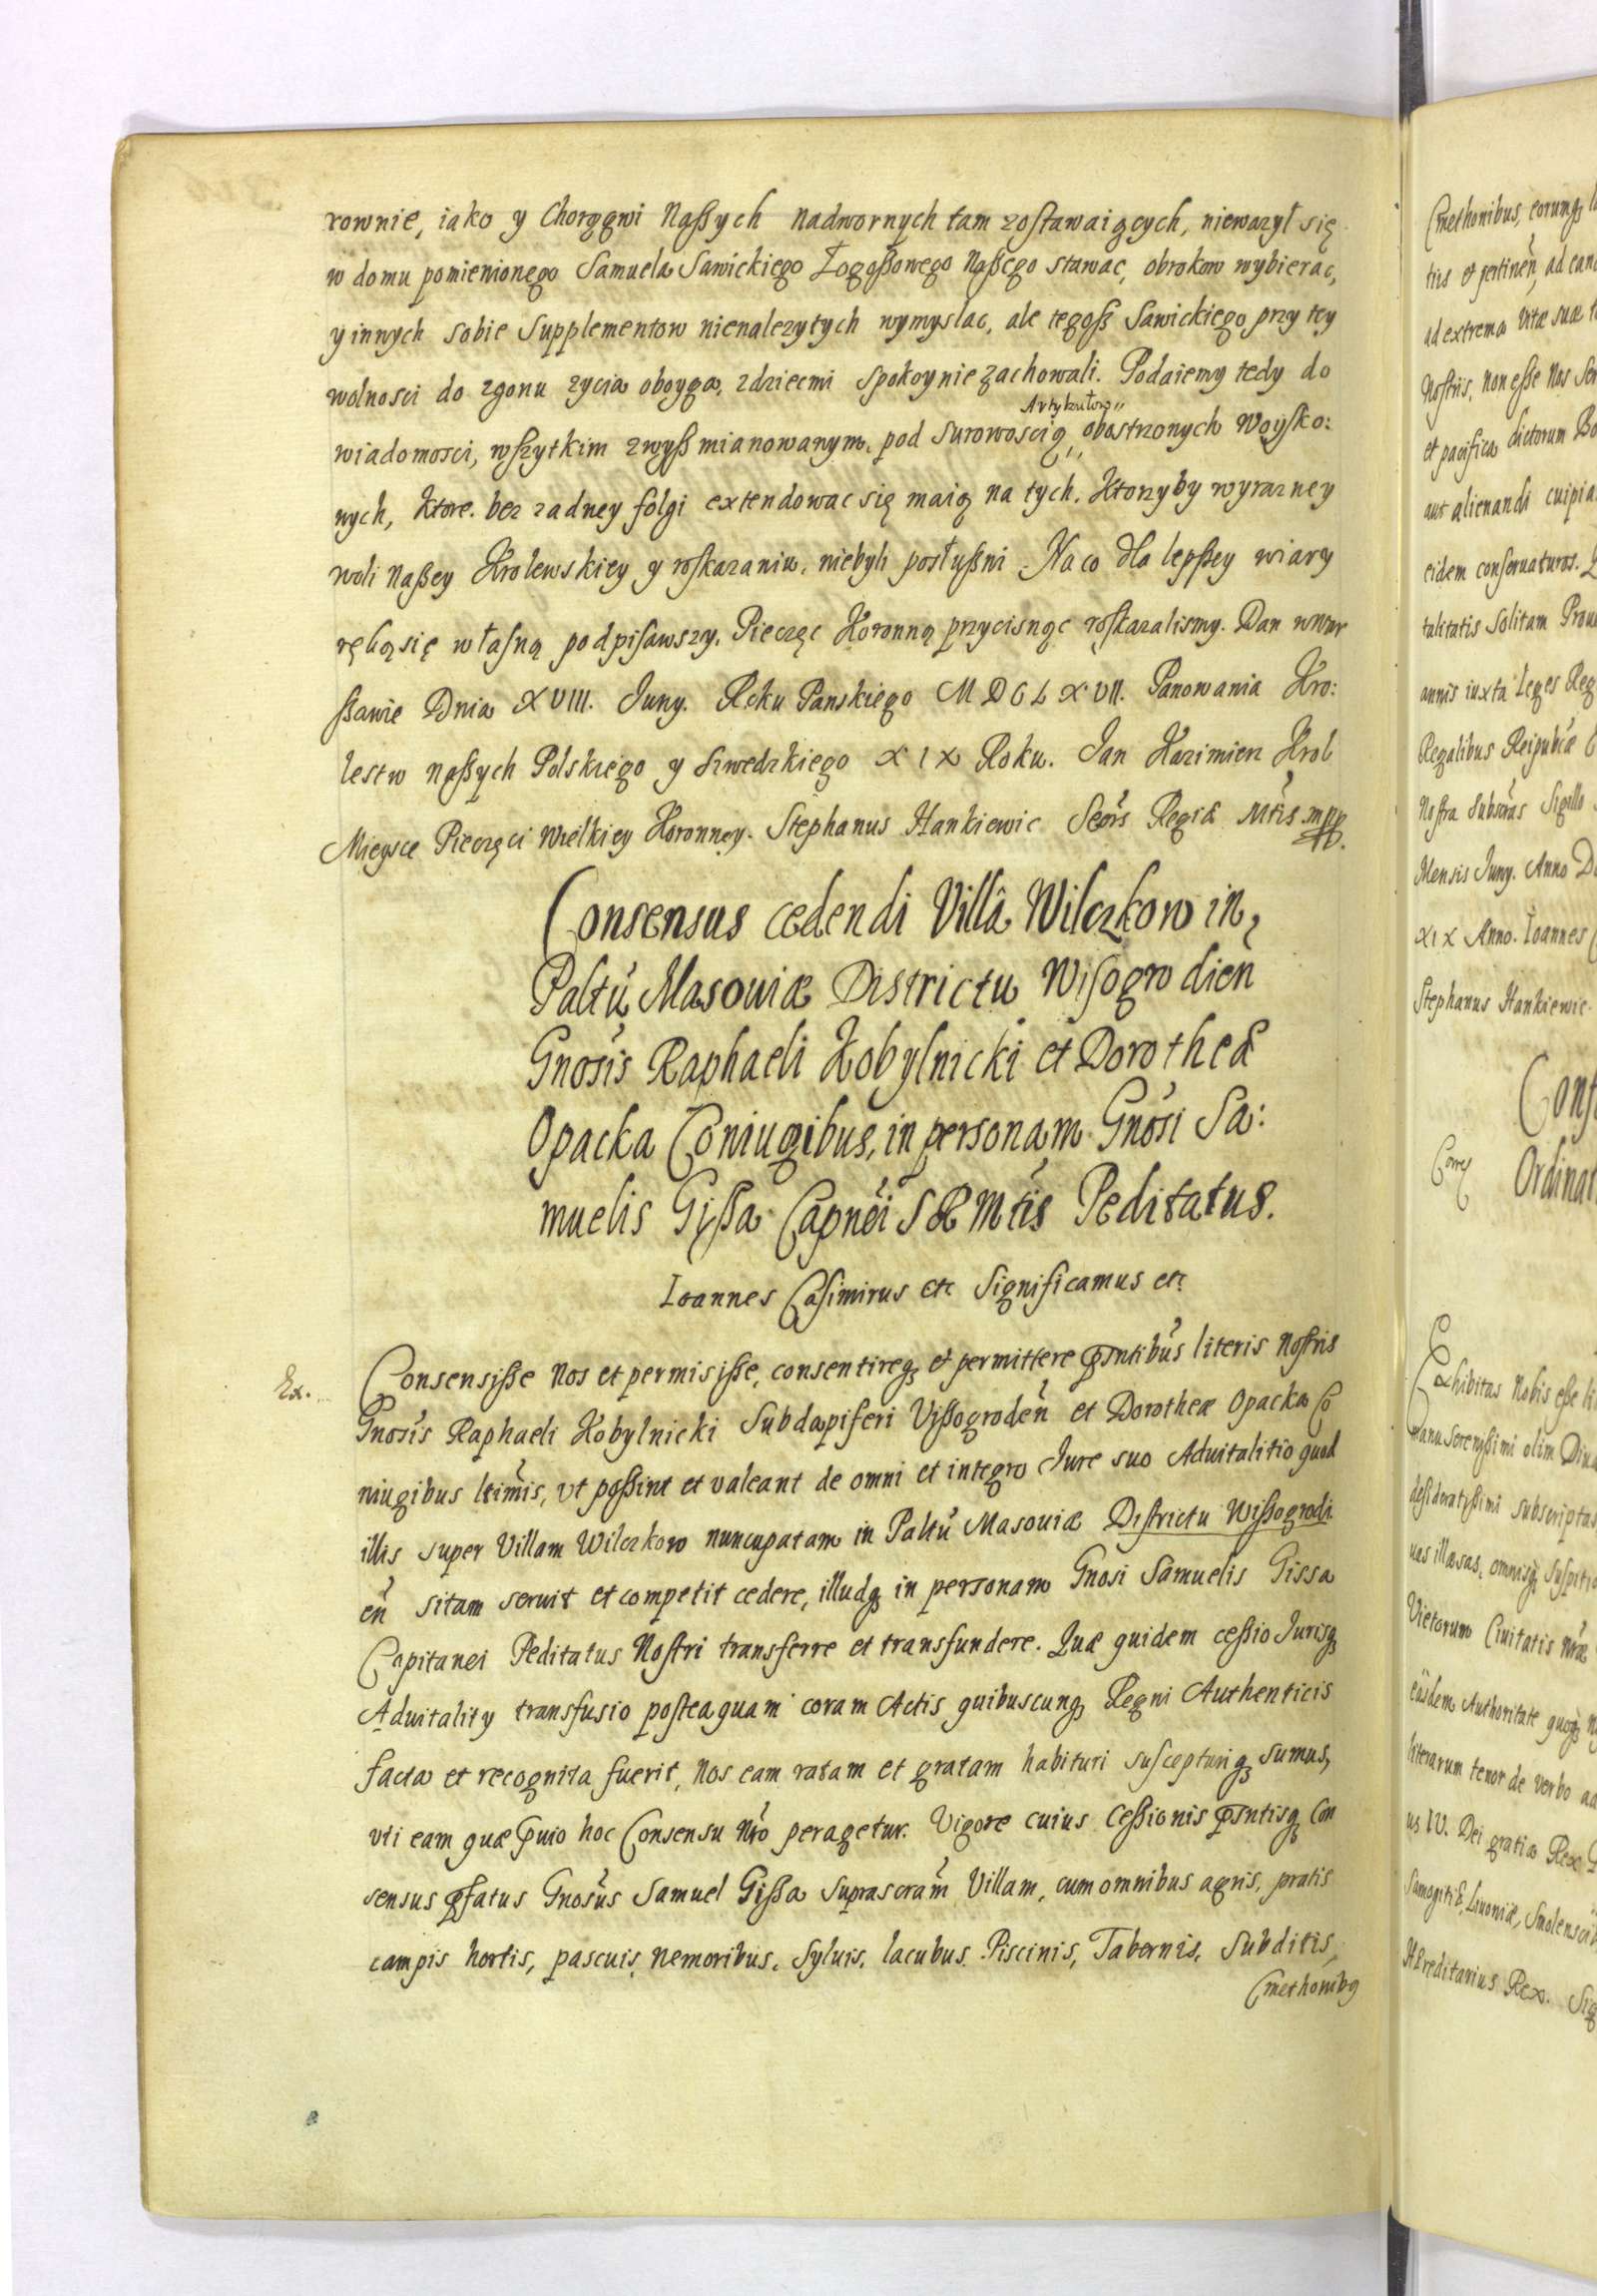 rownie, iako y Chorągwi Naszych nadwornych tam zostawaiących, niewazył się
w domu pomienionego Samuela Sawickiego Łogoszowego Naszego stawac, obrokow wybierac,
y innych sobie Supplementow nienalezytych wymyslac, ale tegosz Sawickiego przy tey
wolnosci do zgonu zycia oboyga, zdziecmi Spokoynie zachowali. Podaiemy tedy do
Artykułow
wiadomosci, wszytkim zwysz mianowanym, pod Surowoscią, obostrzonych Woysko:
nych, Ktore. bez zadney folgi extendowac się maią na tych. Ktorzyby wyrazney
woli Naszey Krolewskiey y roskazaniu, niebyli posłuszni. Na co dla lepszey wiary
ręką się własną podpisawszy. Pieczęc Koronną przycisnąc roskazalismy. Dan w War
szawie Dnia XVIII. Juny. Roku Panskiego MDCLXVII. Panowania Kro:
lestw naszych Polskiego y Szwedzkiego XIX Roku. Jan Kazimierz Krol
Mieysce Pieczęci Wielkiey Koronney. Stephanus Hankiewic Secrs Regiæ Mtis mpp.
Consensus cedendi Villâ Wilczkow in
Paltu Masouiæ Districtu Wisogrodien
Gnosis Raphaeli Kobylnicki et Dorotheæ
Opacka Coniugibus, in personam Gnosi Sa:
muelis Gissa Capnei SRMtis Peditatus.
Ioannes Casimirus etc Significamus etc
Ex.
Consensisse Nos et permisisse, consentireq et permittere pntibus literis Nostris
Gnosis Raphaeli Kobylnicki Subdapiferi Vissogroden et Dorotheæ Opacka Co
niugibus ltimis, vt possint et valeant de omni et integro Jure suo Aduitalitio quod
illis super Villam Wilczkow nuncupatam in Paltu Masouiæ Districtu Wissogrodi
en sitam seruit et competit cedere, illudq in personam Gnosi Samuelis Gissa
Capitanei Peditatus Nostri transferre et transfundere. Quæ quidem cessio Jurisq
Aduitality transfusio posteaquam coram Actis quibuscunq Regni Authenticis
facta et recognita fuerit, Nos eam ratam et gratam habituri suscepturiq sumus,
vti eam quæ puio hoc Consensu Nro peragetur. Vigore cuius Cessionis pntisq Con
sensus pfatus Gnosus Samuel Gissa suprascram Villam, cum omnibus agris, pratis
campis hortis, pascuis, nemoribus, Syluis, lacubus Piscinis, Tabernis, Subditis,
Cmethonibq
Cmethonibus, eorumq
tiis et pertinen, ad
ad extrema Vitæ suæ
Nostris, non esse Nos
et pacifica dictorum
aut alienandi
eidem conseruaturos.
talitatis Solitam
annis iuxta leges Reg
Regalibus Reipublæ
Nostra Subscras Sigillo
Mensis Juny. Anno
XIX Anno. Ioannes
Stephanus Hankiewic
Cons
Ordinat
Exhibitas Nobis esse
manu Serenissimi olim
desideratissimi subscriptas
uas illæsas, omniq
Vietorum Ciuitatis Nræ
easdem Authoritate
literarum tenor de verbo
us IV. Dei gratia Rex
Samogitiæ, Liuoniæ,
Hæreditarius Rex.